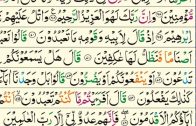 مُّؤْمِنِينَ ۝ وَإِنَّ رَبَّكَ لَهُوَ ٱلْعَزِيزُ ٱلرَّحِيمُ ۝ وَٱتْلُ عَلَيْهِمْ
إِبْرَٰهِيمَ ۝ إِذْ قَالَ لِأَبِيهِ وَقَوْمِهِۦ مَا تَعْبُدُونَ ۝ قَالُوا۟
أَصْنَامًا فَنَظَلُّ لَهَا عَٰكِفِينَ ۝ قَالَ هَلْ يَسْمَعُونَكُمْ
تَدْعُونَ ۝ أَوْ يَنفَعُونَكُمْ أَوْ يَضُرُّونَ ۝ قَالُوا۟ بَلْ وَجَدْنَآ
كَذَٰلِكَ يَفْعَلُونَ ۝ قَالَ أَفَرَءَيْتُم مَّا كُنتُمْ تَعْبُدُونَ ۝
ٱلْأَقْدَمُونَ ۝ فَإِنَّهُمْ عَدُوٌّ لِّىٓ إِلَّا رَبَّ ٱلْعَٰلَمِينَ